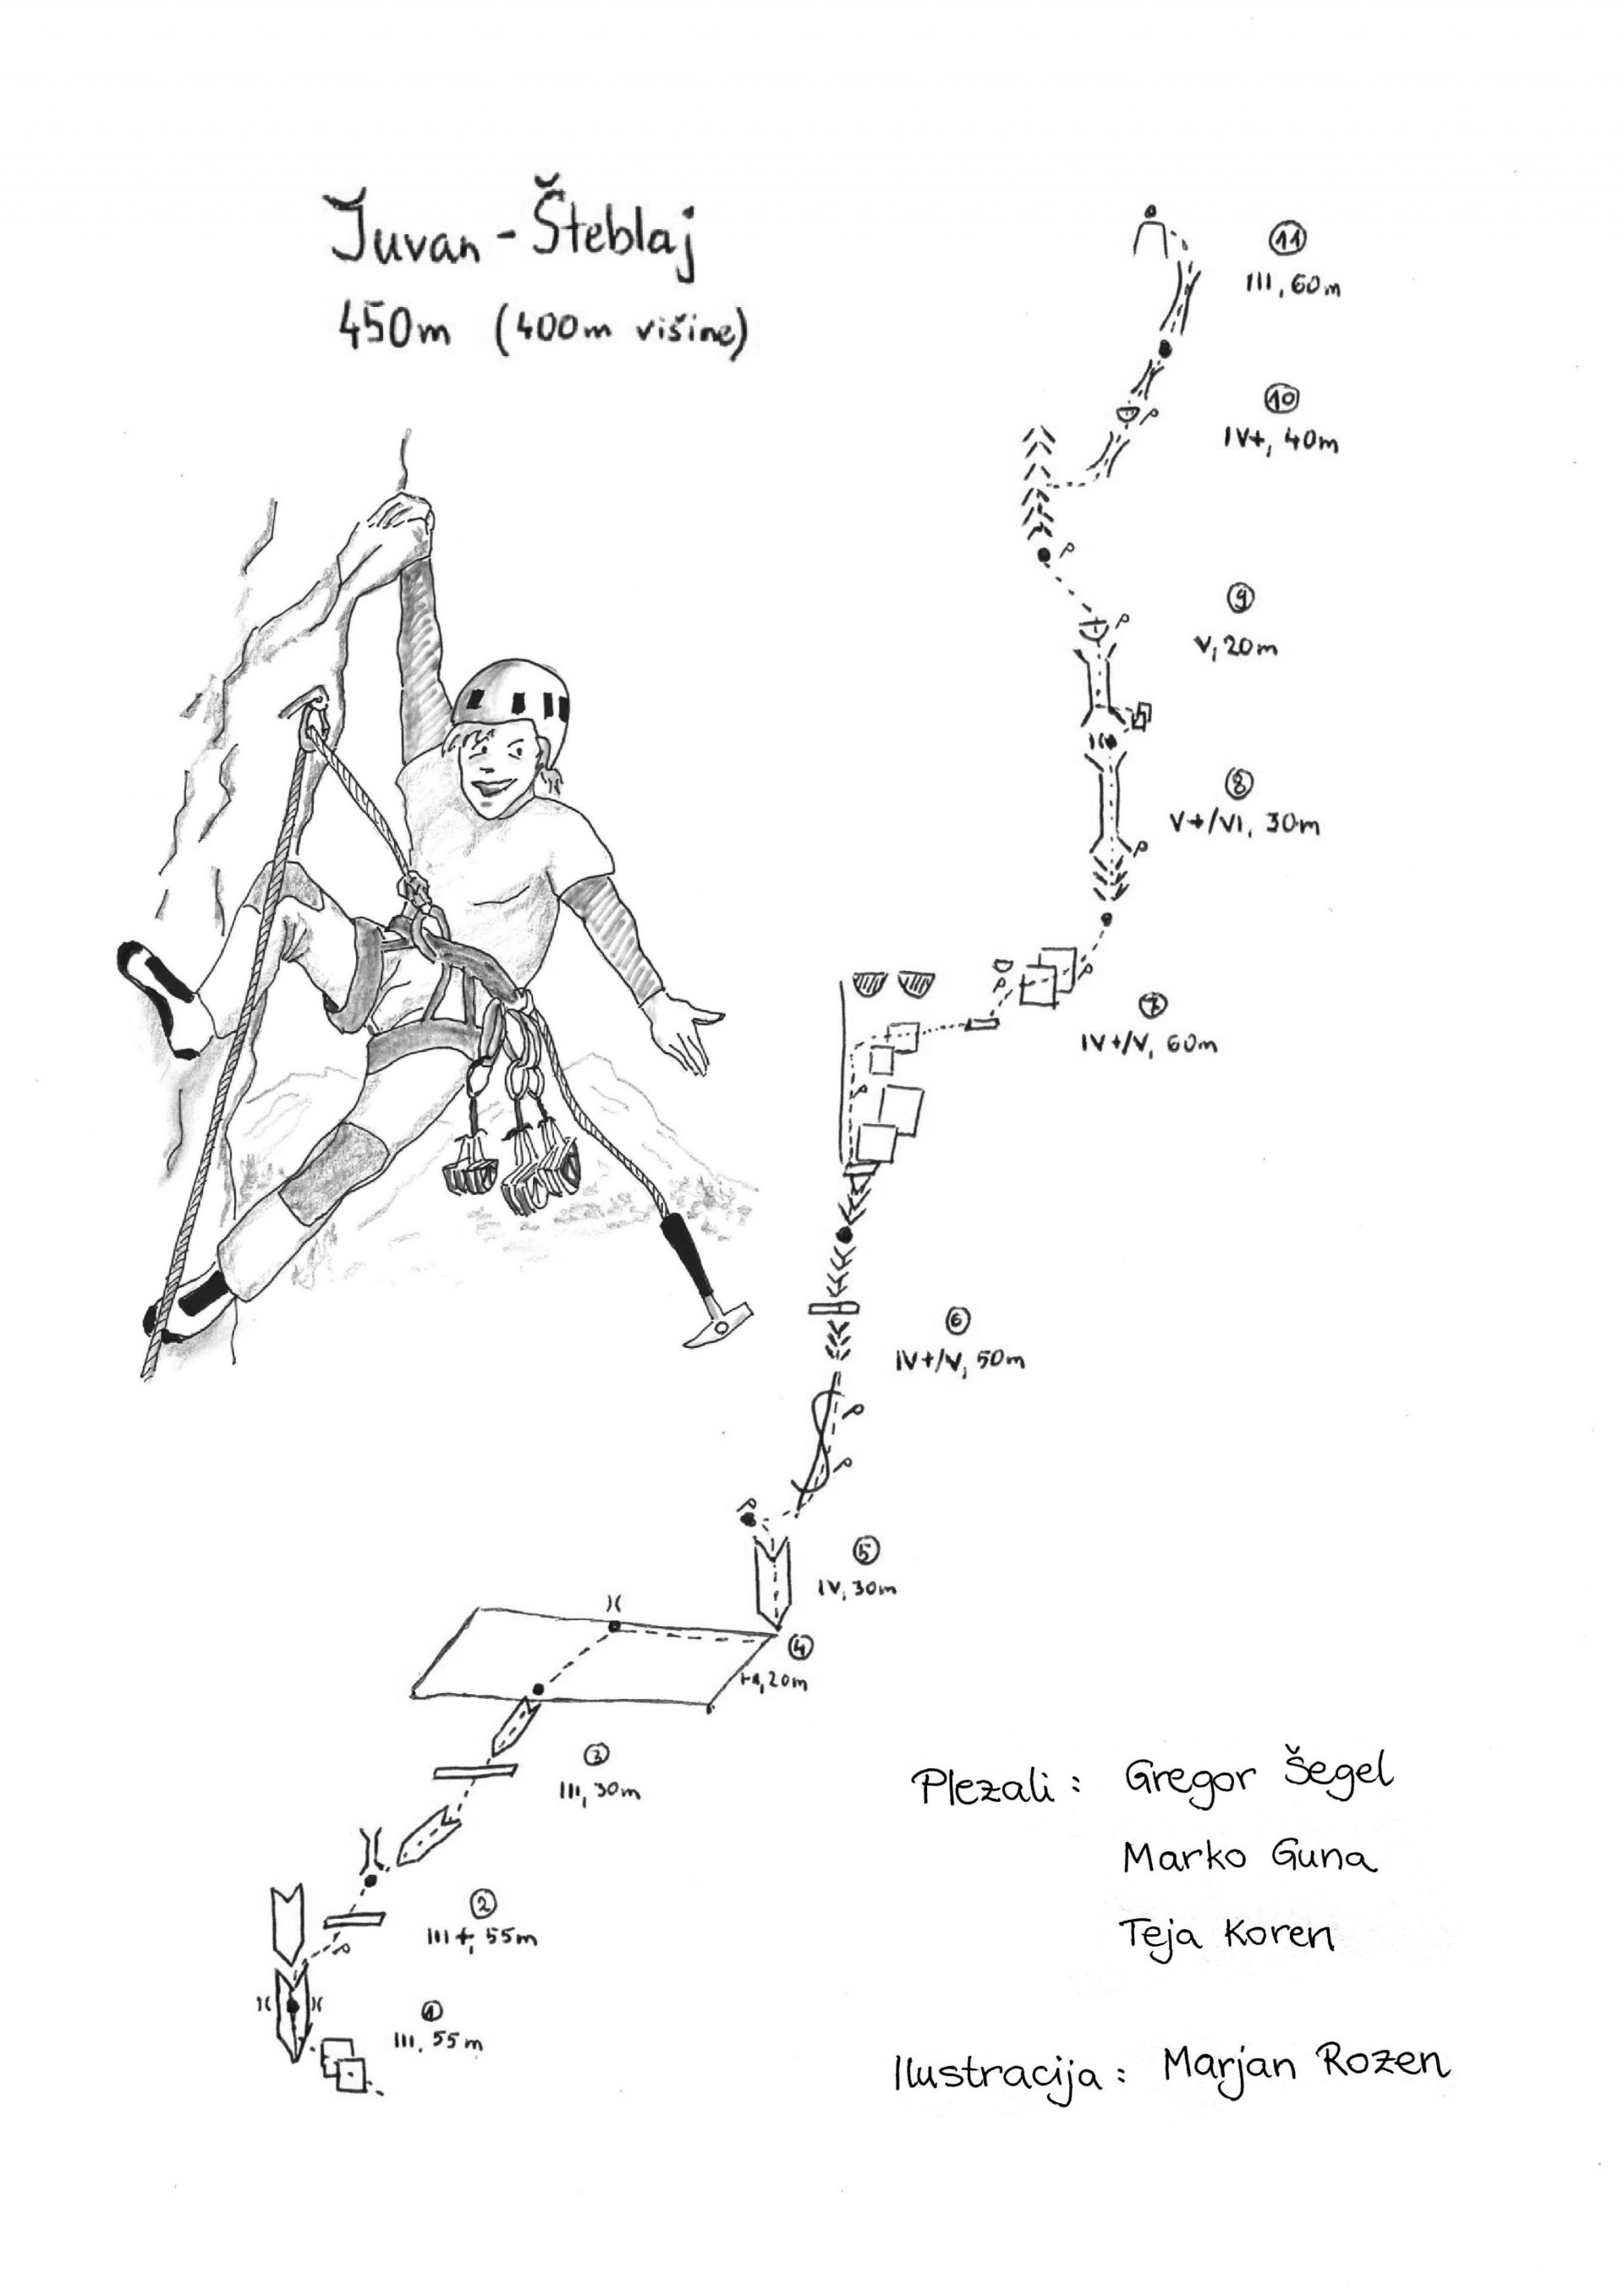 Juvan - Šteblaj
450m (400m višine)
11
III, 60m
10
IV+, 40m
9
V, 20m
8
V+/VI, 30m
7
IV+/V, 60m
6
IV+/V, 50m
5
IV, 30m
4
20m
3
III, 30m
2
III+, 55m
1
III, 55m
Plezali: Gregor Šegel
Marko Guna
Teja Koren
Ilustracija: Marjan Rozen